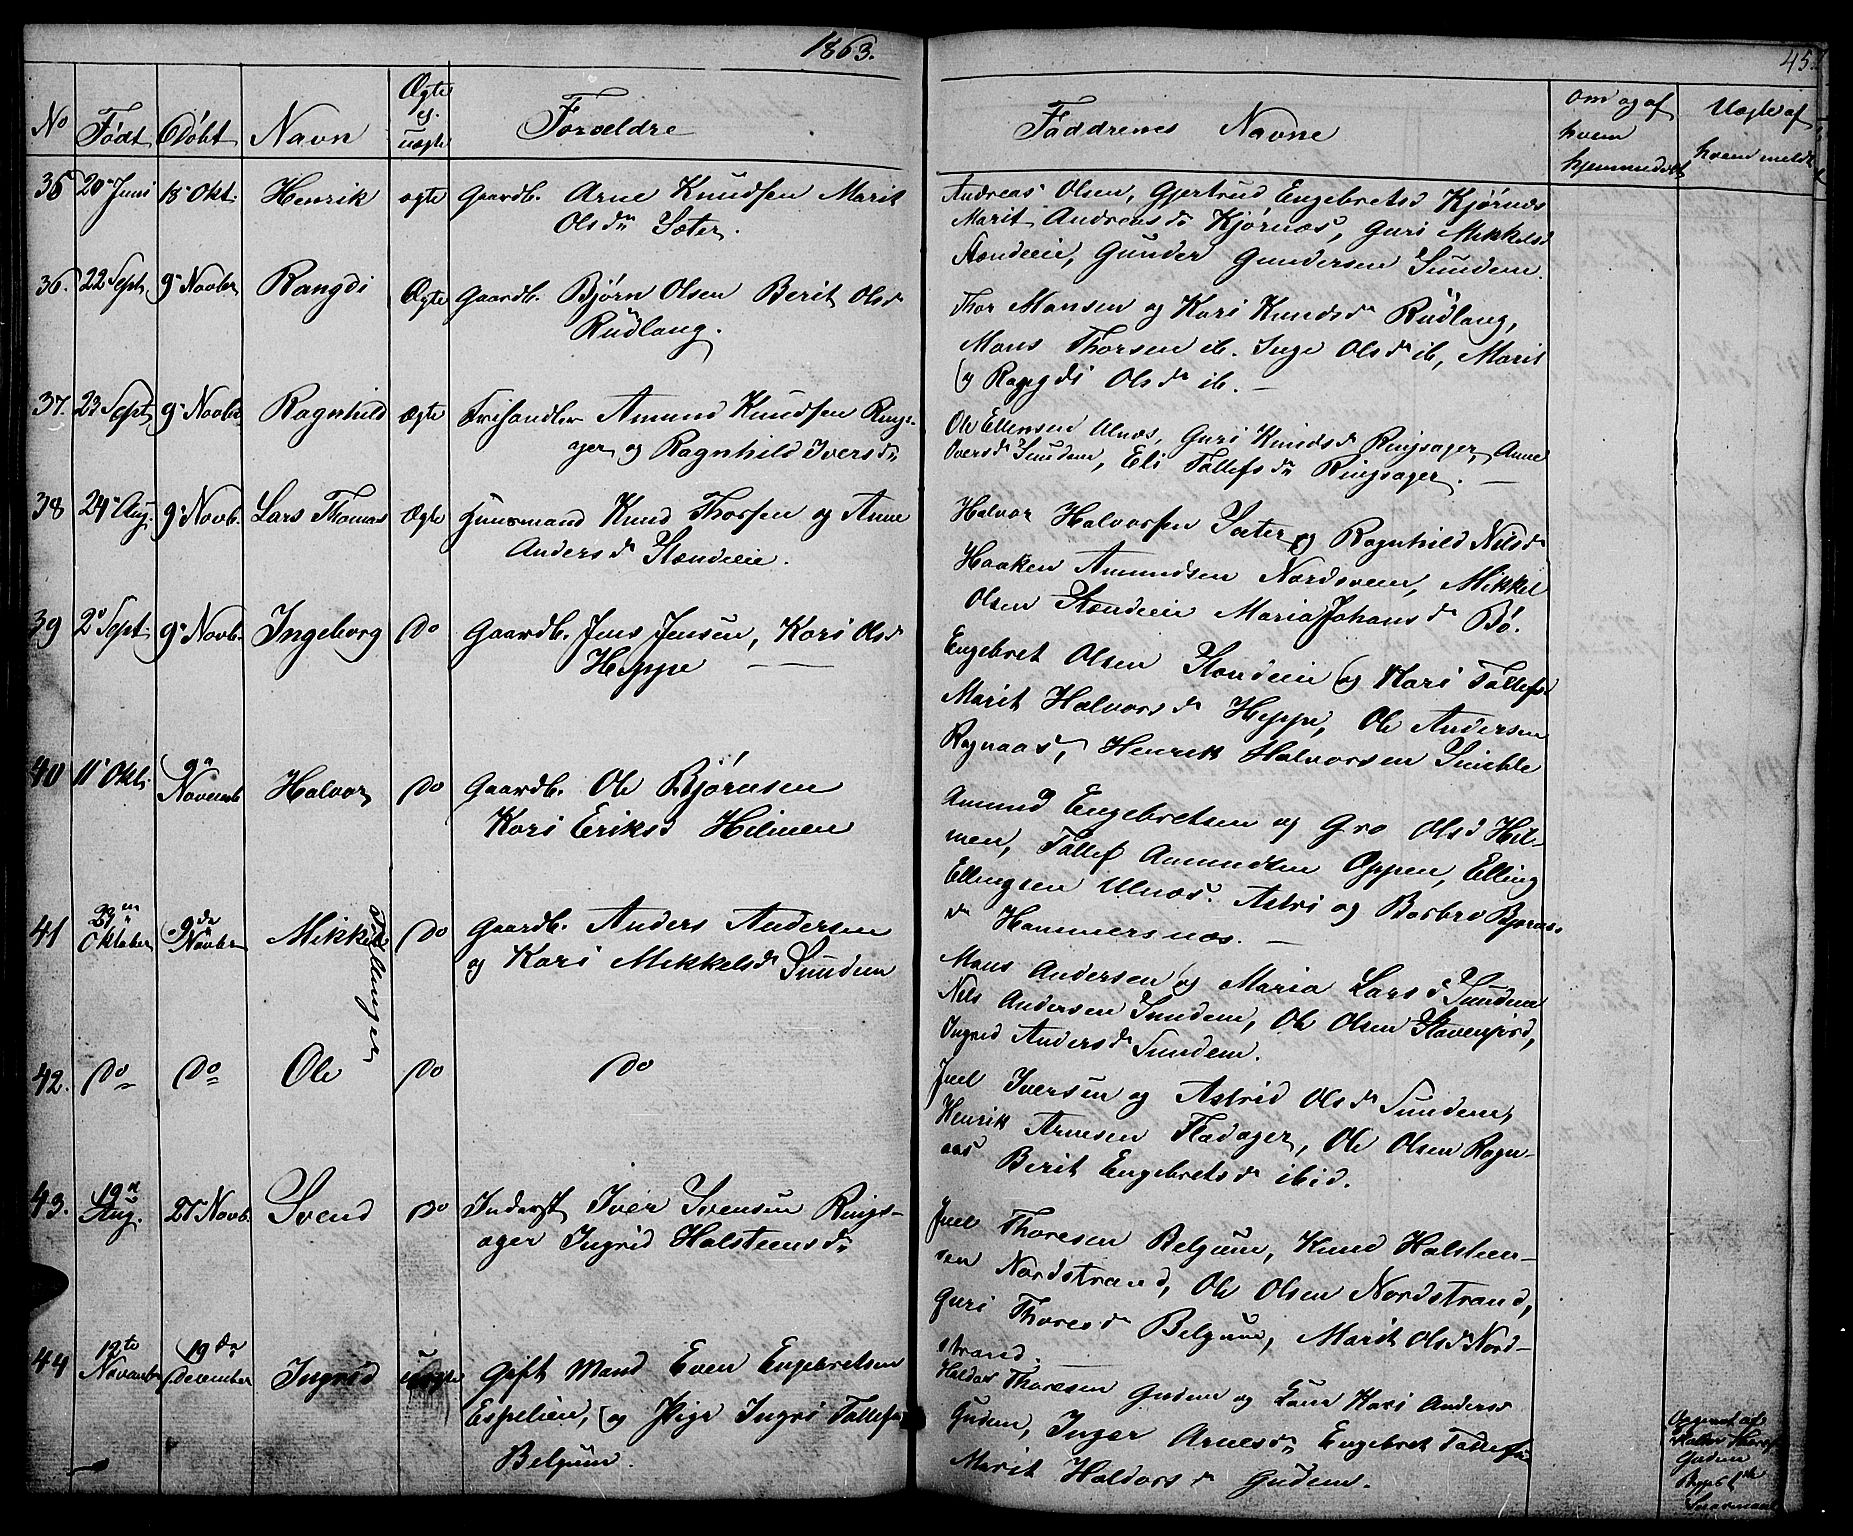 1863.
45.
No Født Døbt Navn Ægte el. uægte Forældre
Faddrenes Navne om og af hvem hjemmedøbt Uægte af hvem meldt
35 20 Juni 18 Okt. Henrik ægte Gaardb. Arne Knudsen Marit
Olsdr Sæter.
Andreas Olsen, Gjertrud Engebretsd Kjørnæs
Marit Andreasdr Kjørnæs, Guri Mikkelsd
Gunder Gundersen Sundem.
36. 22 Sept. 9 Novbr Rangdi Ægte Gaardb. Bjørn Olsen Berit Olsd
Rudlang.
Thor Monsen og Kari Knudsdr Rudlang,
Mons Thorsen ib. Inge Olsdr ib, Marit
og Rangdi Olsdr ib. —
37. 23 Sept. 9 Novbr Ragnhild ægte Amund Knudsen Rings-
ager og Ragnhild Iversdr
Ole Ellensen Ulnæs, Guri Knudsdr Ringsager, Anne
Iversdr Sundem, Eli Tollefsdr Ringsager. —
38 24 Aug. 9 Novb. Lars Thomas Ægte Huusmand Knud Thorsen og Anne
Andersdr
Halvor Halvorsen Sæter og Ragnhild Nelsdr
Haaken Amundsen Nordsveen, Mikkel
Olsen Maria Johansdr Bø.
39 2 Sept. 9 Novb. Ingeborg Do Gaardb. Jens Jensen, Kari Olsd
Heppe —
Engebret Olsen og Kari Tollefsd
Marit Halvorsdr Heppe, Ole Andersen
Rognaas, Henrik Halvorsen
40 11 Okt. 9 Novemb. Halvor Do Gaardb. Ole Bjørnsen
Kari Eriksd Hilmen
Amund Engebretsen og Gro Olsd Hil-
men, Tollef Amundsen Oppen, Elling
Ellingsen Ulnæs. Astri og Barbro Bjørns-
dr Hammersnæs. —
41 23 Oktober 9de Novbr Mikkel Tvillinger Do Gaardb. Anders Andersen
og Kari Mikkelsdr Sundem
Mons Andersen og Maria Larsd Sundem
Nels Andersen Sundem, Ole Olsen
Ingrid Andersdr Sundem.
42. Do Do Ole Do Do
Juel Iversen og Astrid Olsdr Sundem,
Henrik Arnesen Fladager, Ole Olsen Rogn-
aas Berit Engebretsdr ibid.
43. 19 Aug. 27 Novb. Svend Do Inderst Iver Svensen Rings-
ager Ingrid Halsteensdr
Juel Thoresen Belgum, Knud Halsteen-
sen Nordstrand, Ole Olsen Nordstrand,
Guri Thoresdr Belgum, Marit Olsdr Nord-
strand.
44 12te Novembr 19de December Ingrid uægte Gift Mand Even Engebretsen
Espelien, og Pige Ingri Tollefsdr
Belgum.
Haldor Thoresen Gudem og Kari Andersd
Gudem, Inger Arnesdr, Engebret Tollefsen
Marit Haldorsdr Gudem.
Opgivet af
Haldor Thores
Gudem